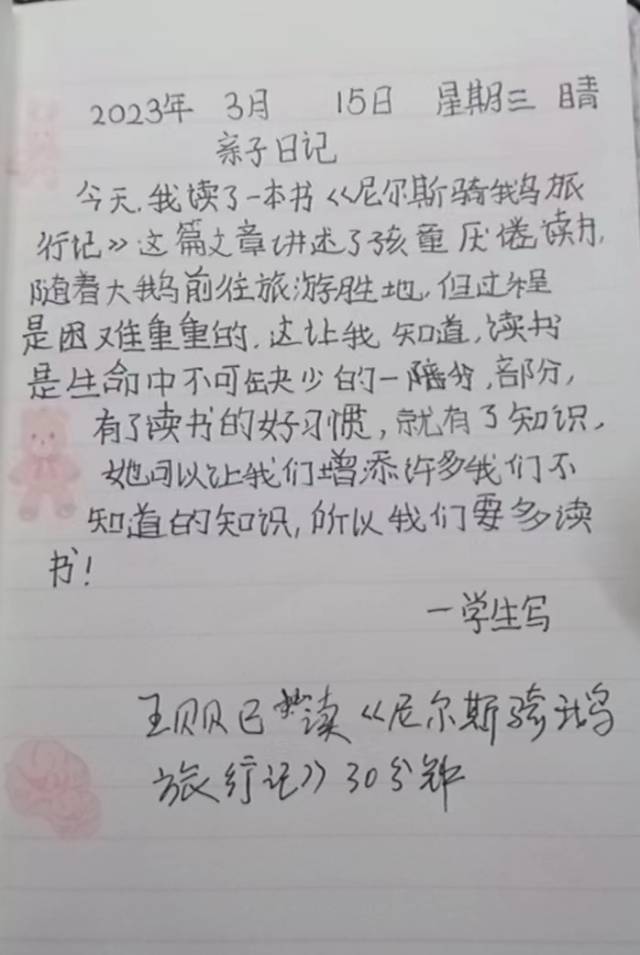 2023年 3月 15日 星期三 晴
亲子日记
今天,我读了一本书《尼尔斯骑鹅旅
行记》这篇文章讲述了孩童厌倦读书,
随着大鹅前往旅游胜地,但过程
是困难重重的,这让我知道,读书
是生命中不可缺少的一部分,
有了读书的好习惯,就有了知识,
她可以让我们增添许多我们不
知道的知识,所以我们要多读
书!
一学生写
王贝贝已读《尼尔斯骑鹅
旅行记》30分钟